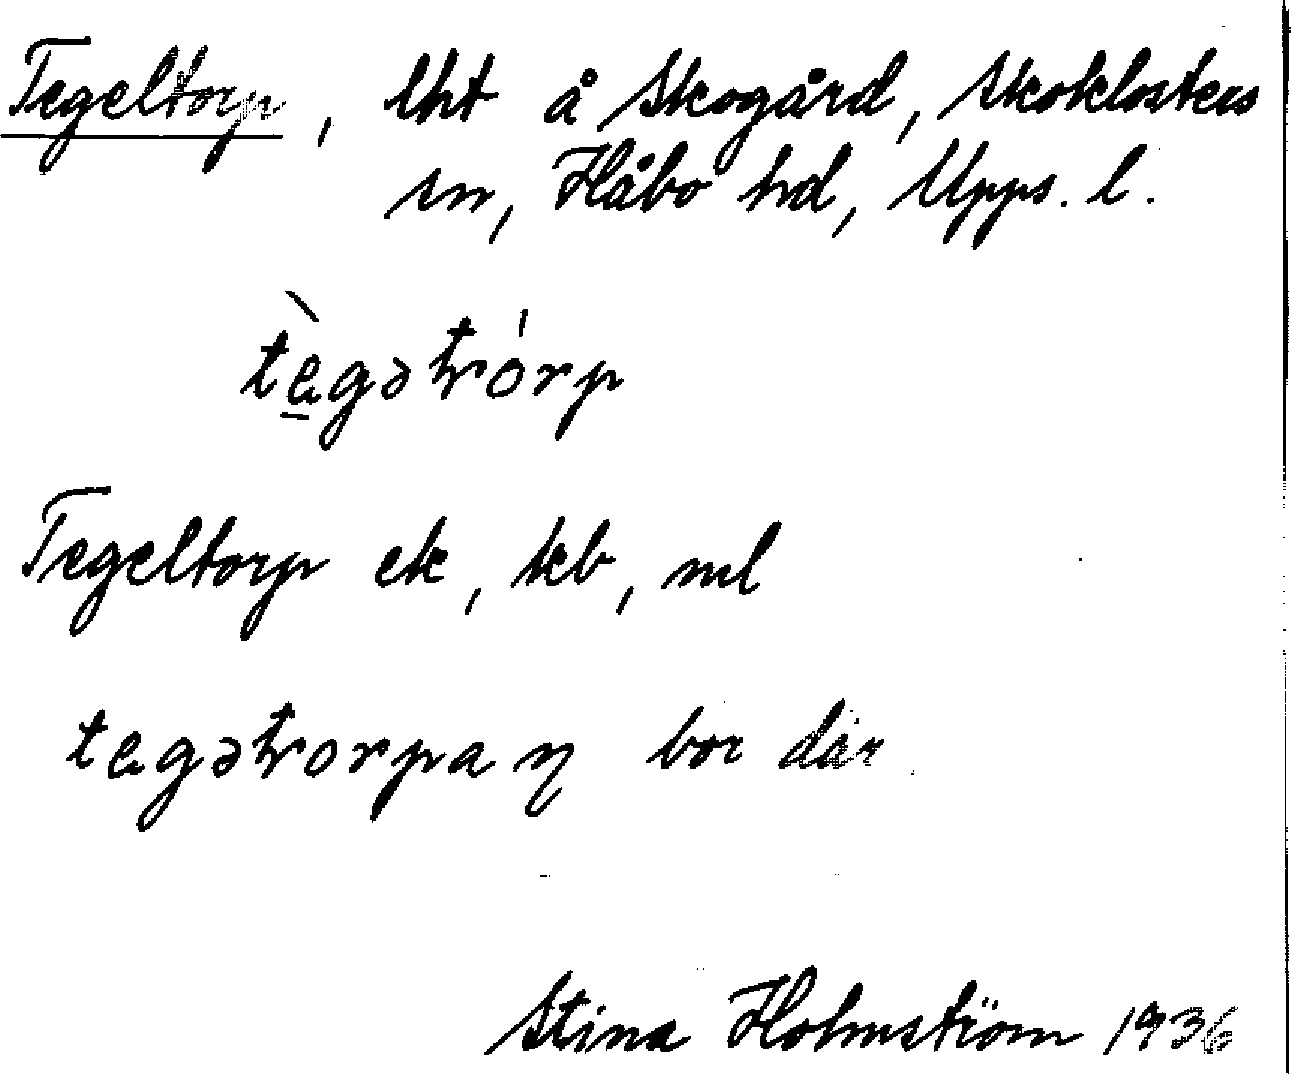 Tegeltorp, lht å Skogård, Skoklosters
sn, Håbo hd, Upps. l.
tègətrórp
Tegeltorp ek, kb, ml
tegətrorpaŋ bor där
Stina Holmström 1936